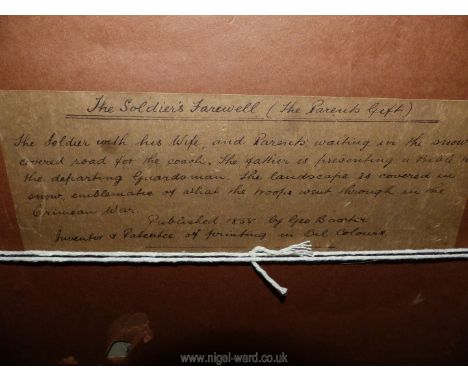 The Soldier's Farewell (The Parents Gift)
The Soldier with his Wife, and Parents waiting in the snow
covered road for the coach. The father is presenting a Bible to
the departing Guardsman. The landscape is covered in
snow, emblematic of what the troops went through in the
Crimean War.
Published 1855 by Geo Baxter
Inventor & Patentee of printing in Oil Colours
www.nigel-ward.co.uk